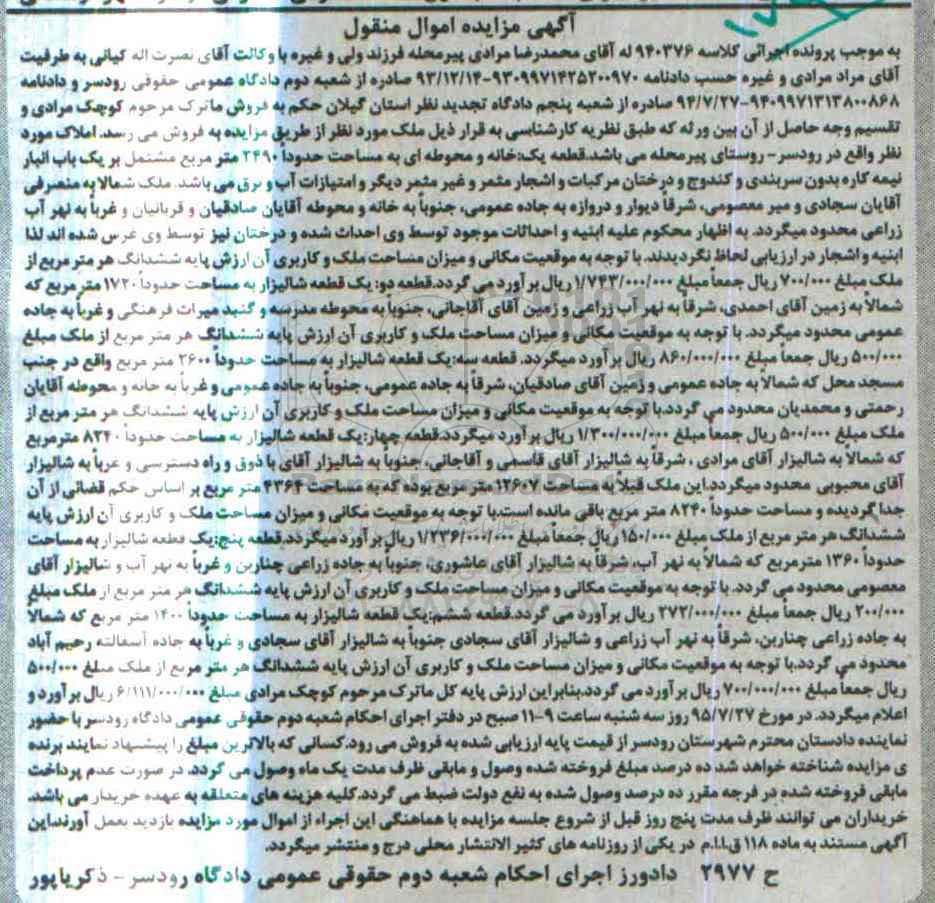 آگهی مزایده اموال منقول
به موجب پرونده اجرائی کلاسه ۹۴۰۳۷۶ له آقای محمدرضا مرادی پیرمحله فرزند ولی و غیره با وکالت آقای نصرت اله کیانی به طرفیت
آقای مراد مرادی و غیره حسب دادنامه ۹۳۰۹۹۷۱۴۳۵۲۰۰۹۷۰-۹۳/۱۲/۱۴ صادره از شعبه دوم دادگاه عمومی حقوقی رودسر و دادنامه
۹۴۰۹۹۷۱۳۱۳۸۰۰۸۶۸-۹۴/۷/۲۷ صادره از شعبه پنجم دادگاه تجدید نظر استان گیلان حکم به فروش ماترک مرحوم کوچک مرادی و
تقسیم وجه حاصل از آن بین ورثه که طبق نظریه کارشناسی به قرار ذیل ملک مورد نظر از طریق مزایده به فروش می رسد. املاک مورد
نظر واقع در رودسر- روستای پیرمحله می باشد.قطعه یک:خانه و محوطه ای به مساحت حدوداً ۲۴۹۰ متر مربع مشتمل بر یک باب انبار
نیمه کاره بدون سربندی و کندوج و درختان مرکبات و اشجار مثمر و غیر مثمر دیگر و امتیازات آب و برق می باشد. ملک شمالا به متصرفی
آقایان سجادی و میر معصومی، شرقاً دیوار و دروازه به جاده عمومی، جنوباً به خانه و محوطه آقایان صادقیان و قربانیان و غرباً به نهر آب
زراعی محدود میگردد. به اظهار محکوم علیه ابنیه و احداثات موجود توسط وی احداث شده و درختان نیز توسط وی غرس شده اند لذا
ابنیه و اشجار در ارزیابی لحاظ نگردیدند. با توجه به موقعیت مکانی و میزان مساحت ملک و کاربری آن ارزش پایه ششدانگ هر متر مربع از
ملک مبلغ ۷۰۰/۰۰۰ ریال جمعاً مبلغ ۱/۷۴۳/۰۰۰/۰۰۰ ریال برآورد می گردد.قطعه دو: یک قطعه شالیزار به مساحت حدوداً ۱۷۲۰ متر مربع که
شمالاً به زمین آقای احمدی، شرقا به نهر آب زراعی و زمین آقای آقاجانی، جنوباً به محوطه مدرسه و گنبد میراث فرهنگی و غرباً به جاده
عمومی محدود میگردد. با توجه به موقعیت مکانی و میزان مساحت ملک و کاربری آن ارزش پایه ششدانگ هر متر مربع از ملک مبلغ
۵۰۰/۰۰۰ ریال جمعاً مبلغ ۸۶۰/۰۰۰/۰۰۰ ریال برآورد میگردد. قطعه سه:یک قطعه شالیزار به مساحت حدوداً ۲۶۰۰ متر مربع واقع در جنب
مسجد محل که شمالاً به جاده عمومی و زمین آقای صادقیان، شرقا به جاده عمومی، جنوباً به جاده عمومی و غربا به خانه و محوطه آقایان
رحمتی و محمدیان محدود می گردد.با توجه به موقعیت مکانی و میزان مساحت ملک و کاربری آن ارزش پایه ششدانگ هر متر مربع از
ملک مبلغ ۵۰۰/۰۰۰ ریال جمعاً مبلغ ۱/۳۰۰/۰۰۰/۰۰۰ ریال برآورد میگردد.قطعه چهار:یک قطعه شالیزار به مساحت حدوداً ۸۲۴۰ مترمربع
که شمالاً به شالیزار آقای مرادی ، شرقاً به شالیزار آقای قاسمی و آقاجانی، جنوباً به شالیزار آقای با ذوق و راه دسترسی و غرباً به شالیزار
آقای محبوبی محدود میگردد.این ملک قبلاً به مساحت ۱۲۶۰۷ متر مربع بوده که به مساحت ۴۳۶۴ متر مربع بر اساس حکم قضائی از آن
جدا گردیده و مساحت حدوداً ۸۲۴۰ متر مربع باقی مانده است.با توجه به موقعیت مکانی و میزان مساحت ملک و کاربری آن ارزش پایه
ششدانگ هر متر مربع از ملک مبلغ ۱۵۰/۰۰۰ ریال جمعاً مبلغ ۱/۲۳۶/۰۰۰/۰۰۰ ریال برآورد میگردد.قطعه پنج:یک قطعه شالیزار به مساحت
حدوداً ۱۳۶۰ متر مربع که شمالاً به نهر آب، شرقاً به شالیزار آقای عاشوری، جنوباً به جاده زراعی چناربن و غرباً به نهر آب و شالیزار آقای
معصومی محدود می گردد. با توجه به موقعیت مکانی و میزان مساحت ملک و کاربری آن ارزش پایه ششدانگ هر متر مربع از ملک مبلغ
۲۰۰/۰۰۰ ریال جمعاً مبلغ ۲۷۲/۰۰۰/۰۰۰ ریال برآورد می گردد.قطعه ششم:یک قطعه شالیزار به مساحت حدوداً ۱۴۰۰ متر مربع که شمالاً
به جاده زراعی چناربن، شرقاً به نهر آب زراعی و شالیزار آقای سجادی جنوباً به شالیزار آقای سجادی و غرباً به جاده آسفالته رحیم آباد
محدود می گردد.با توجه به موقعیت مکانی و میزان مساحت ملک و کاربری آن ارزش پایه ششدانگ هر متر مربع از ملک مبلغ ۵۰۰/۰۰۰
ریال جمعاً مبلغ ۷۰۰/۰۰۰/۰۰۰ ریال برآورد می گردد.بنابراین ارزش پایه کل ماترک مرحوم کوچک مرادی مبلغ ۶/۱۱۱/۰۰۰/۰۰۰ ریال برآورد و
اعلام میگردد. در مورخ ۹۵/۷/۲۷ روز سه شنبه ساعت ۹-۱۱ صبح در دفتر اجرای احکام شعبه دوم حقوقی عمومی دادگاه رودسر با حضور
نماینده دادستان محترم شهرستان رودسر از قیمت پایه ارزیابی شده به فروش می رود.کسانی که بالاترین مبلغ را پیشنهاد نمایند برنده
ی مزایده شناخته خواهد شد ده درصد مبلغ فروخته شده وصول و مابقی ظرف مدت یک ماه وصول می گردد. در صورت عدم پرداخت
مابقی فروخته شده در فرجه مقرر ده درصد وصول شده به نفع دولت ضبط می گردد.کلیه هزینه های متعلقه به عهده خریدار می باشد.
خریداران می توانند ظرف مدت پنج روز قبل از شروع جلسه مزایده با هماهنگی این اجراء از اموال مورد مزایده بازدید بعمل آورند.این
آگهی مستند به ماده ۱۱۸ ق.ا.ا.م در یکی از روزنامه های کثیر الانتشار محلی درج و منتشر میگردد.
ح ۲۹۷۷ دادورز اجرای احکام شعبه دوم حقوقی عمومی دادگاه رودسر - ذکریاپور